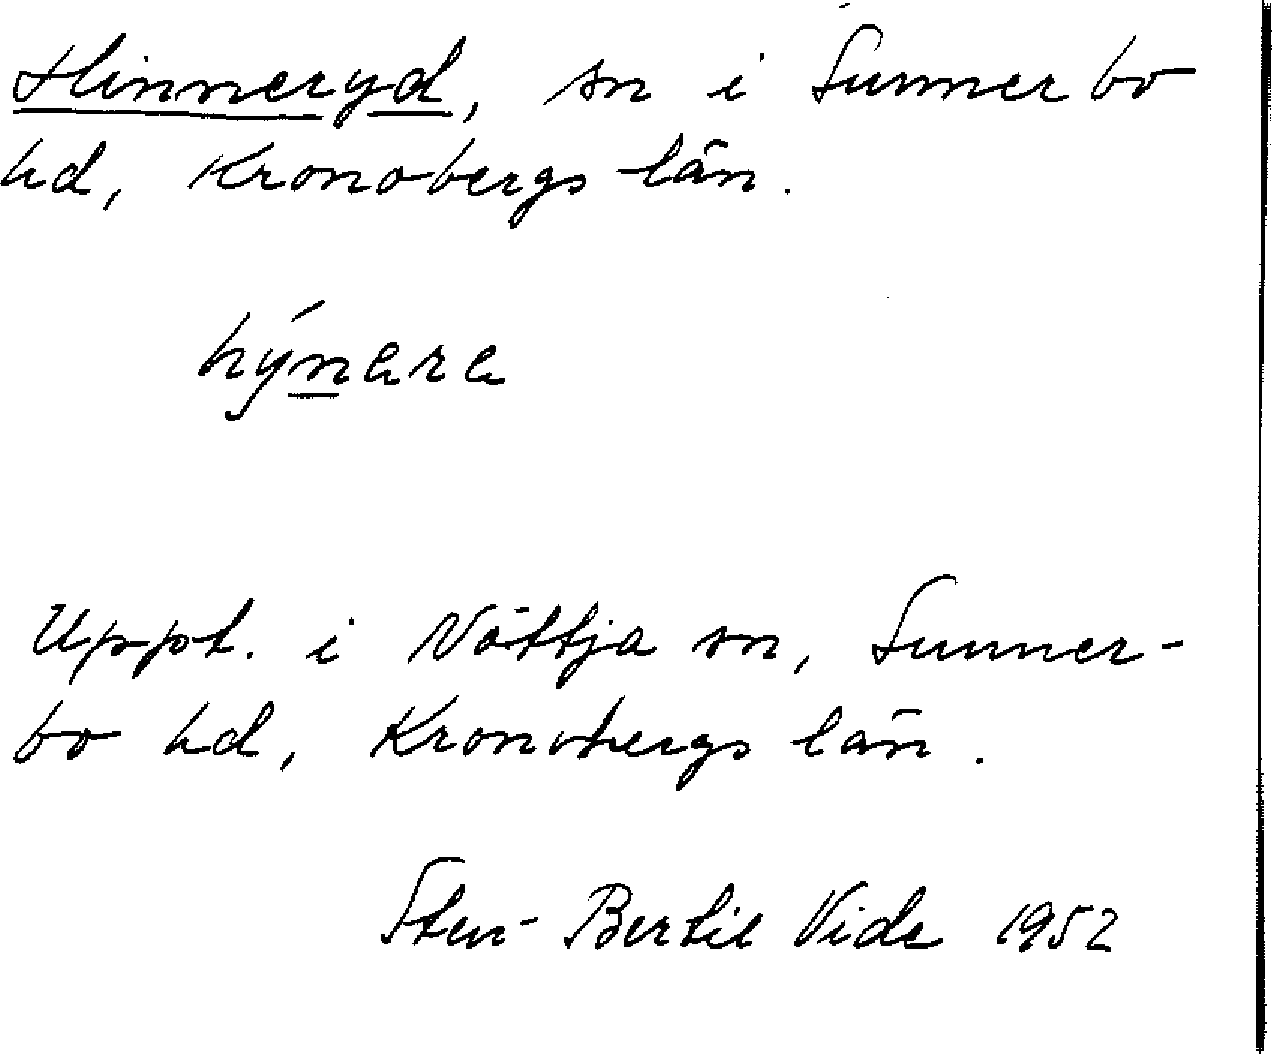 Hinneryd, sn i Sunnerbo
hd, Kronobergs län.
hýnara
Uppt. i Nöttja sn, Sunner-
bo hd, Kronobergs län.
Sten-Bertil Vide 1952